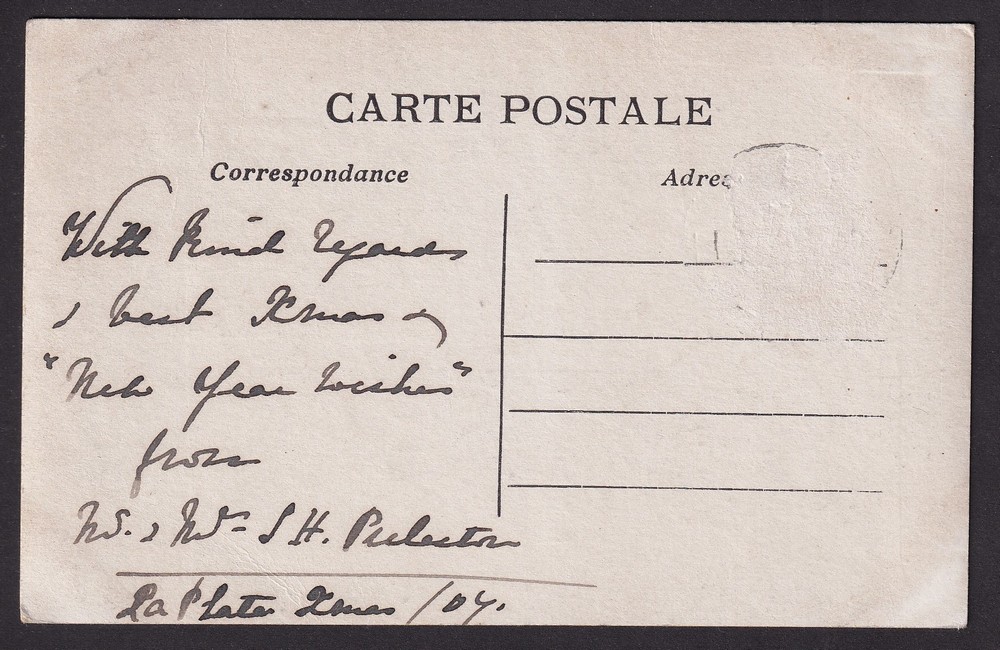 CARTE POSTALE
Correspondance
Adres
With Kind Regards
& best Xmas &
"New Year Wishes"
from
Mr. & Mrs S H.
La Plata Xmas /07.